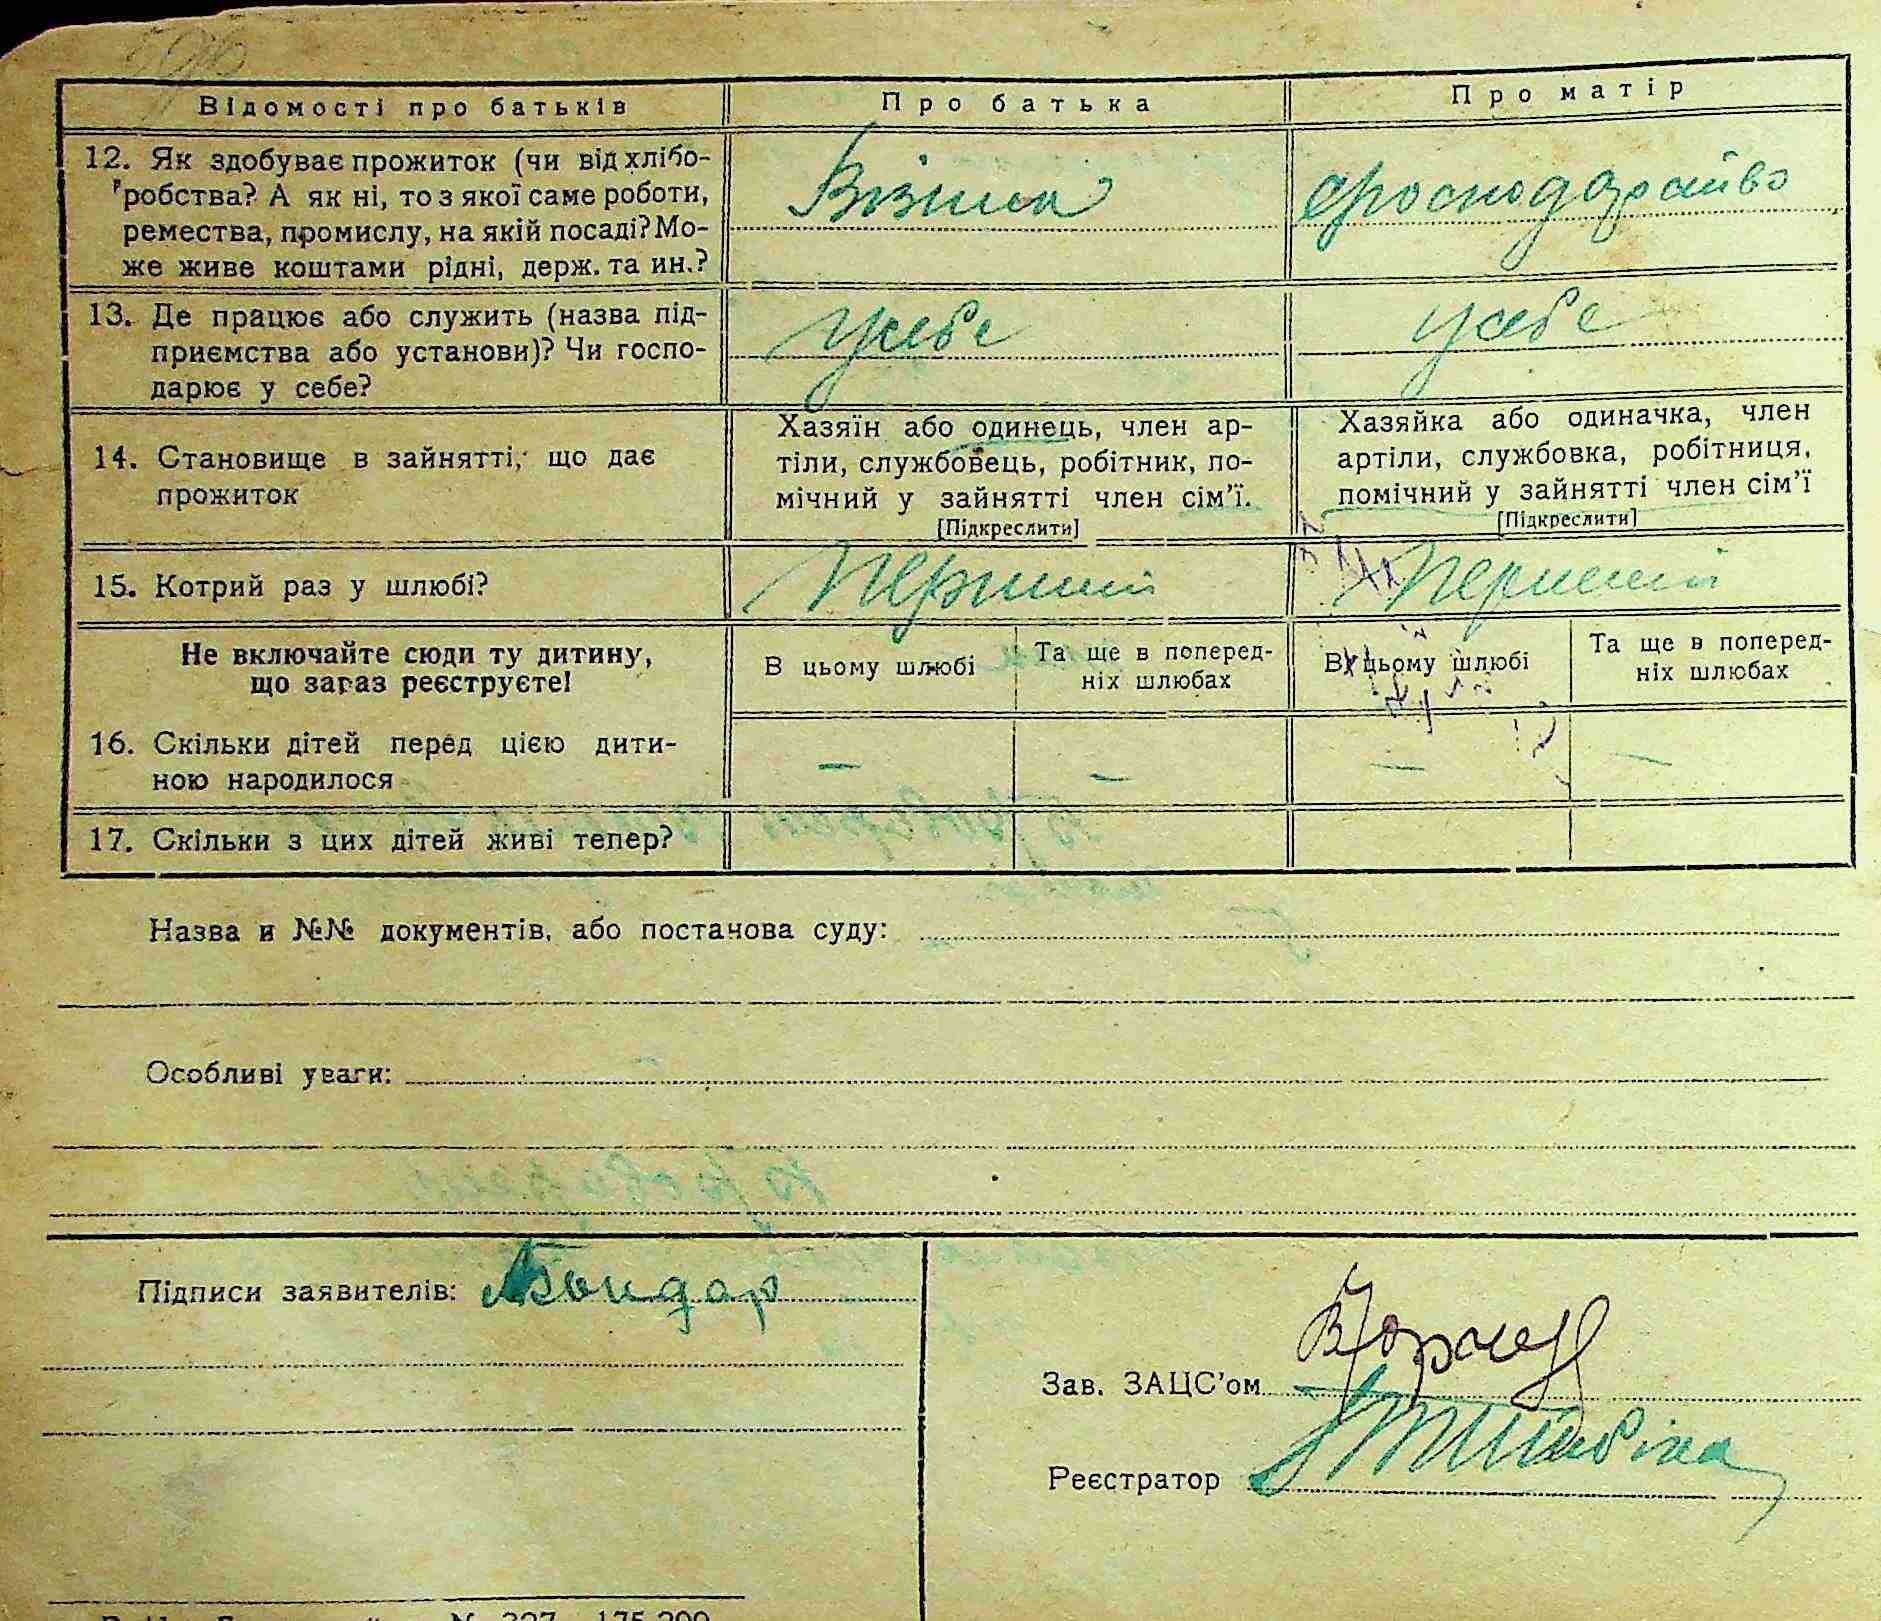 Відомості про батьків
Про батька
Про матір
12. Як здобуває прожиток (чи від хлібо-
робства? А як ні, то з якої саме роботи,
ремества, промислу, на якій посаді? Мо-
же живе коштами рідні, держ. та ин.?
Візник
13. Де працює або служить (назва під-
приємства або установи)? Чи госпо-
дарює у себе?
у себе
у себе
14. Становище в зайнятті, що дає
прожиток
Хазяїн або одинець, член ар-
тіли, службовець, робітник, по-
мічний у зайнятті член сім’ї.
[Підкреслити]
Хазяйка або одиначка, член
артіли, службовка, робітниця,
помічний у зайнятті член сім’ї
[Підкреслити]
15. Котрий раз у шлюбі?
Перший
Перший
Не включайте сюди ту дитину,
що зараз реєструєте!
В цьому шлюбі
Та ще в поперед-
ніх шлюбах
В цьому шлюбі
Та ще в поперед-
ніх шлюбах
16. Скільки дітей перед цією дити-
ною народилося
–
–
–
–
17. Скільки з цих дітей живі тепер?
Назва и №№ документів, або постанова суду:
Особливі уваги:
Підписи заявителів: Бондар
Зав. ЗАЦС’ом
Реєстратор
№ 327 175.200